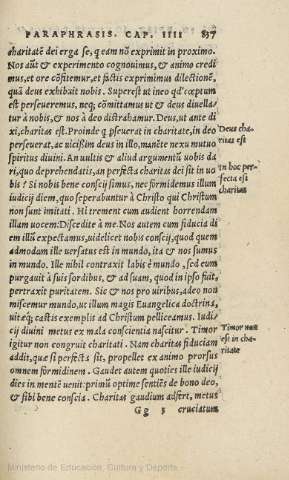 PARAPHRASIS. CAP. IIII 837
charitatē dei erga se, q̄ eam nō exprimit in proximo.
Nos aūt & experimento cognouimus, & animo credi
mus, et ore cōfitemur, et factis exprimimus dilectionē,
quā deus exhibuit nobis. Superest ut ineo qd' cœptum
est perseueremus, neq; cōmittamus ut & deus diuella/
tur à nobis, & nos à deo distrahamur. Deus, ut ante di
xi, charitas est. Proinde q perseuerat in charitate, in deo
perseuerat, ac uicißim deus in illo, manēte nexu mutuo
spiritus diuini. An uultis & aliud argumentū uobis da
ri, quo deprehendatis, an perfecta charitas dei sit in uo
bis? Si nobis bene conscij simus, nec formidemus illum
iudicij diem, quo separabuntur à Christo qui Christum
non sunt imitati. Hi trement cum audient horrendam
illam uocem: Discedite à me. Nos autem cum fiducia di
em illū expectamus, uidelicet nobis conscij, quod quem
admodum ille uersatus est in mundo, ita & nos sumus
in mundo. Ille nihil contraxit labis è mundo, sed eum
purgauit à suis sordibus, & ad suam, quod in ipso fuit,
pertraxit puritatem. Sic & nos pro uiribus, adeo non
miscemur mundo, ut illum magis Euangelica doctrina,
uitæq; castis exemplis ad Christum pelliceamus. Iudi/
cij diuini metus ex mala conscientia nascitur. Timor
igitur non congruit charitati. Nam charitas fiduciam
addit, quæ si perfecta sit, propellet ex animo prorsus
omnem formidinem. Gaudet autem quoties ille iudicij
dies in mentē uenit primū optime sentiēs de bono deo,
& sibi bene conscia. Charitas gaudium adfert, metus
Gg 3 cruciatum
Deus cha/
ritas est
in hoc per
fecta est
charitas
Timor non
est in cha/
ritate
Ministerio de Educación, Cultura y Deporte